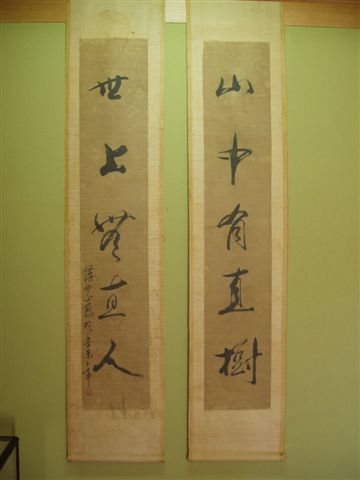 山中有直樹
世上無直人